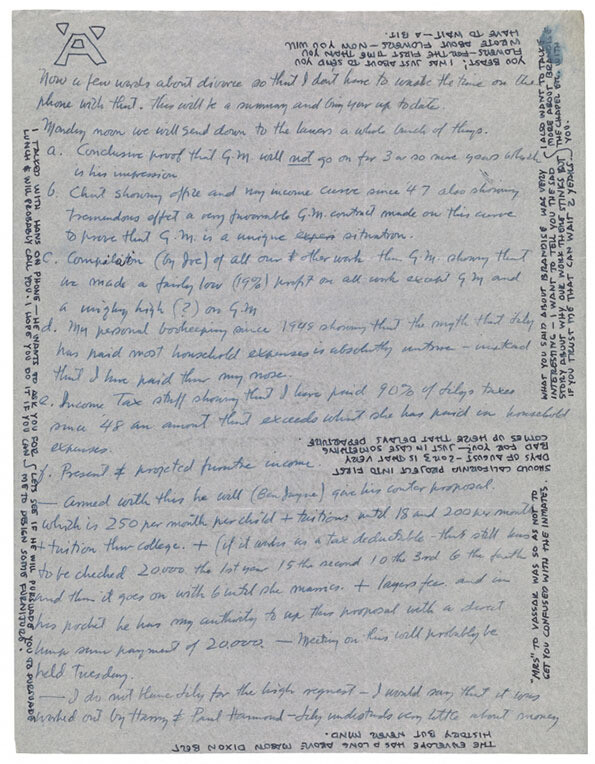 A
YOU BEAST, I WAS JUST ABOUT TO SEND YOU
FLOWERS - FOR THE FIRST TIME THAN YOU
WROTE ABOUT FLOWERS - NOW YOU WILL
HAVE TO WAIT - A BIT.
Now a few words about divorce so that I dont have to waste the time on the
phone with that. This will be a summary and bring you up to date.
Monday noon we will send down to the lawers a whole bunch of things.
a. Conclusive proof that G.M. will not go on for 3 or so more years which
is his impression
b. Chart showing office and my income curve since 47 also showing
tremendous effect a very favorable G.M. contract made on this curve
to prove that G.M. is a unique situation.
C. Compilation (by Joe) of all our other work than G.M. showing that
we made a fairly low (19%) profit on all work except G.M. and
a mighty high (?) on G.M
d. My personal bookeeping since 1948 showing that the myth that Lily
has paid most household expenses is absolutly untrue - instead
that I have paid thru my nose.
e. Income Tax stuff showing that I have paid 90% of Lilys taxes
since 48 an amount that exceeds what she has paid in household
expenses.
f. Present & projected future income
— Armed with this he will give his counter proposal.
which is 250 per month per child + tuitions until 18 and 200 per month
+ tuition thru college. + (if it works as a tax deductable - that still has
to be checked 20000 the 1st year 15 the second 10 the 3rd 6 the fourth
and then it goes on with 6 until she marries. + lawyers fee. and in
his pocket he has my authority to up this proposal with a secret
lump sum payment of 20.000. — Meeting on this will probably be
held Tuesday.
— I do not blame Lily for the high request - I would say that it was
worked out by Harry & Paul Hammond - Lily understands very little about money
I TALKED WITH HANS ON PHONE - HE WANTS TO ASK YOU FOR
LUNCH & WILL PROBABLY CALL YOU. I HOPE YOU DO IT IF YOU CAN
LETS SEE IF HE WILL PURSUADE YOU TO PURSUADE
ME TO DESIGN SOME FURNITURE.
WHAT YOU SAID ABOUT BRANDISE WAS VERY
INTERESTING - I WANT TO TELL YOU THE SAD
STORY ABOUT WHY OUR WORK THERE STINKS BUT
IF YOU TRUST ME THAT CAN WAIT 2 YEARS
I ALSO WANT TO TALK
MORE ABOUT BRANDISE
THE CHAPEL ETC. WITH
YOU.
SHOUD CALIFORNIA PROJECT INTO FIRST
DAYS OF AUGUST - 2 OR 3 IS THAT VERY
BAD FOR YOU? JUST IN CASE SOMETHING
COMES UP HERE THAT DELAYS DEPARTURE
"MRS" TO VASSAR WAS SO AS NOT TO
GET YOU CONFUSED WITH THE INMATES.
THE ENVELOPE HAS A LONG ABOVE MASON DIXON BELT
HISTORY BUT NEVER MIND.